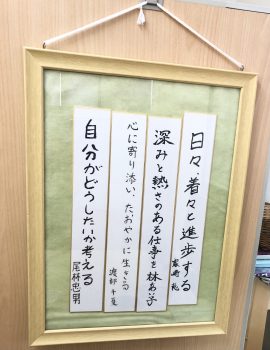 日々、着々と進歩する
深みと熱さのある仕事を
心に寄り添い、たおやかに生きる
渡部千夏
自分がどうしたいか考える
尾林忠男